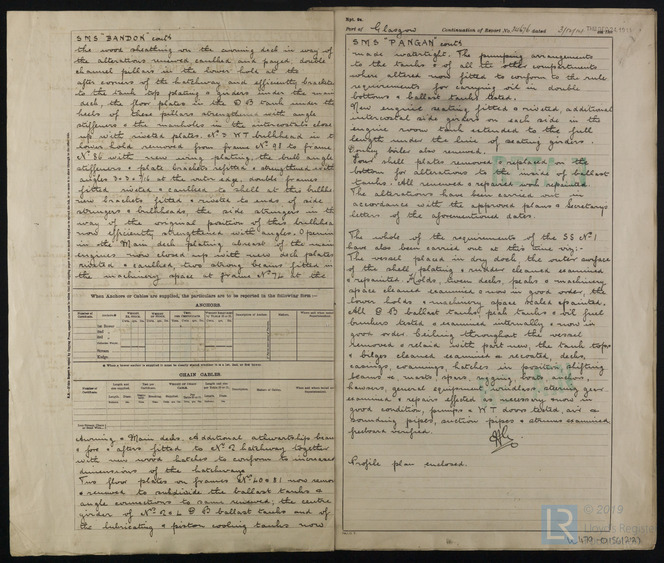 SMS "BANDON" contd
the wood sheathing on the awning deck in way of
the alterations renewed caulked and payed, double
channel pillars in the lower hold at the
after corners of the hatchway and efficiently brackete
to the tank top plating & girders under the main
deck, the floor plates in the DB tank under the
heels of these pillars strengthened with angle
stiffeners & the manholes in the intercostals close
up with riveted plates. No 3 WT bulkhead in t
lower hold removed from frame No 91 to frame
No 86 with new wing plating, the bulb angle
stiffeners & plate brackets refitted & strengthened with
angles at the outer edge, double frames
fitted riveted & caulked to shell at this bulkhe
new brackets fitted & riveted to ends of side
stringers & bulkheads, the side stringers in th
way of the original position of this bulkhea
now efficiently strengthened with angles. Openin
in the Main deck plating abreast of the main
engines now closed up with new deck plates
riveted & caulked, two strong beams fitted in
the machinery space at frame No 74 at the
When Anchors or Cables are supplied, the particulars are to be reported in the following form:—
ANCHORS.
CHAIN CABLES.
Awning & Main decks. Additional athwartship beam
& fore & afters fitted to No 2 hatchway together
with new wood hatches to conform to increased
dimensions of the hatchway.
Two floor plates on frames Nos 40 & 81 now remov
& renewed to subdivide the ballast tanks &
angle connections to same renewed; the centre
girder of Nos 2 & 4 DB ballast tanks and of
the lubricating & piston cooling tanks now
Rpt. 9a.
Port of Glasgow Continuation of Report No. dated
SMS "PANGAN" contd
made watertight. The pumping arrangements
to the tanks & of all the other compartments
where altered now fitted to conform to the rule
requirements for carrying oil in double
bottoms & ballast tanks.
New engine seating fitted & riveted, additional
intercostal side girders on each side in the
engine room tank extended to the full
length under the line of seating girders.
Donkey boiler also renewed.
Four shell plates removed & replaced on the
bottom for alterations to the inside of ballast
tanks. All renewed & repaired work repainted.
The alterations have been carried out in
accordance with the approved plans & Secretarys
letters of the aforementioned dates.
The whole of the requirements of the SS No 1
have also been carried out at this time viz:-
The vessel placed in dry dock, the outer surface
of the shell plating & rudder cleaned examined
& repainted. Holds, tween decks, peaks & machinery
space cleaned examined & now in good order, the
lower holds & machinery space scaled & painted.
All DB ballast tanks peak tanks & oil fuel
bunkers tested & examined internally & now in
good order. Ceiling throughout the vessel
removed & relaid with part new, the tank tops
& bilges cleaned examined & recoated, decks,
casings, coamings, hatches in position, shifting
beams & masts spars, rigging, boats, anchors,
hawsers, general equipment, windlass, steering gear
examined & repairs effected as necessary & now in
good condition, pumps & WT doors tested, air &
sounding pipes, suction pipes & strums examined
freeboard verified.
Profile plan enclosed.
© 2019
LR
Lloyd's Register
W479-0156(2/2)